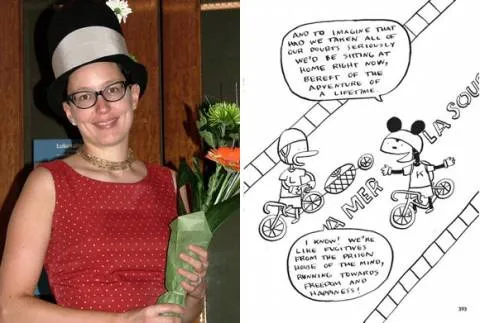 AND TO IMAGINE THAT
HAD WE TAKEN ALL OF
OUR DOUBTS SERIOUSLY
WE'D BE SITTING AT
HOME RIGHT NOW,
BEREFT OF THE
ADVENTURE OF
A LIFETIME.
LA SOUS
LA MER
K
I KNOW! WE'RE
LIKE FUGITIVES
FROM THE PRISON
HOUSE OF THE MIND,
RUNNING TOWARDS
FREEDOM AND
HAPPINESS!
393